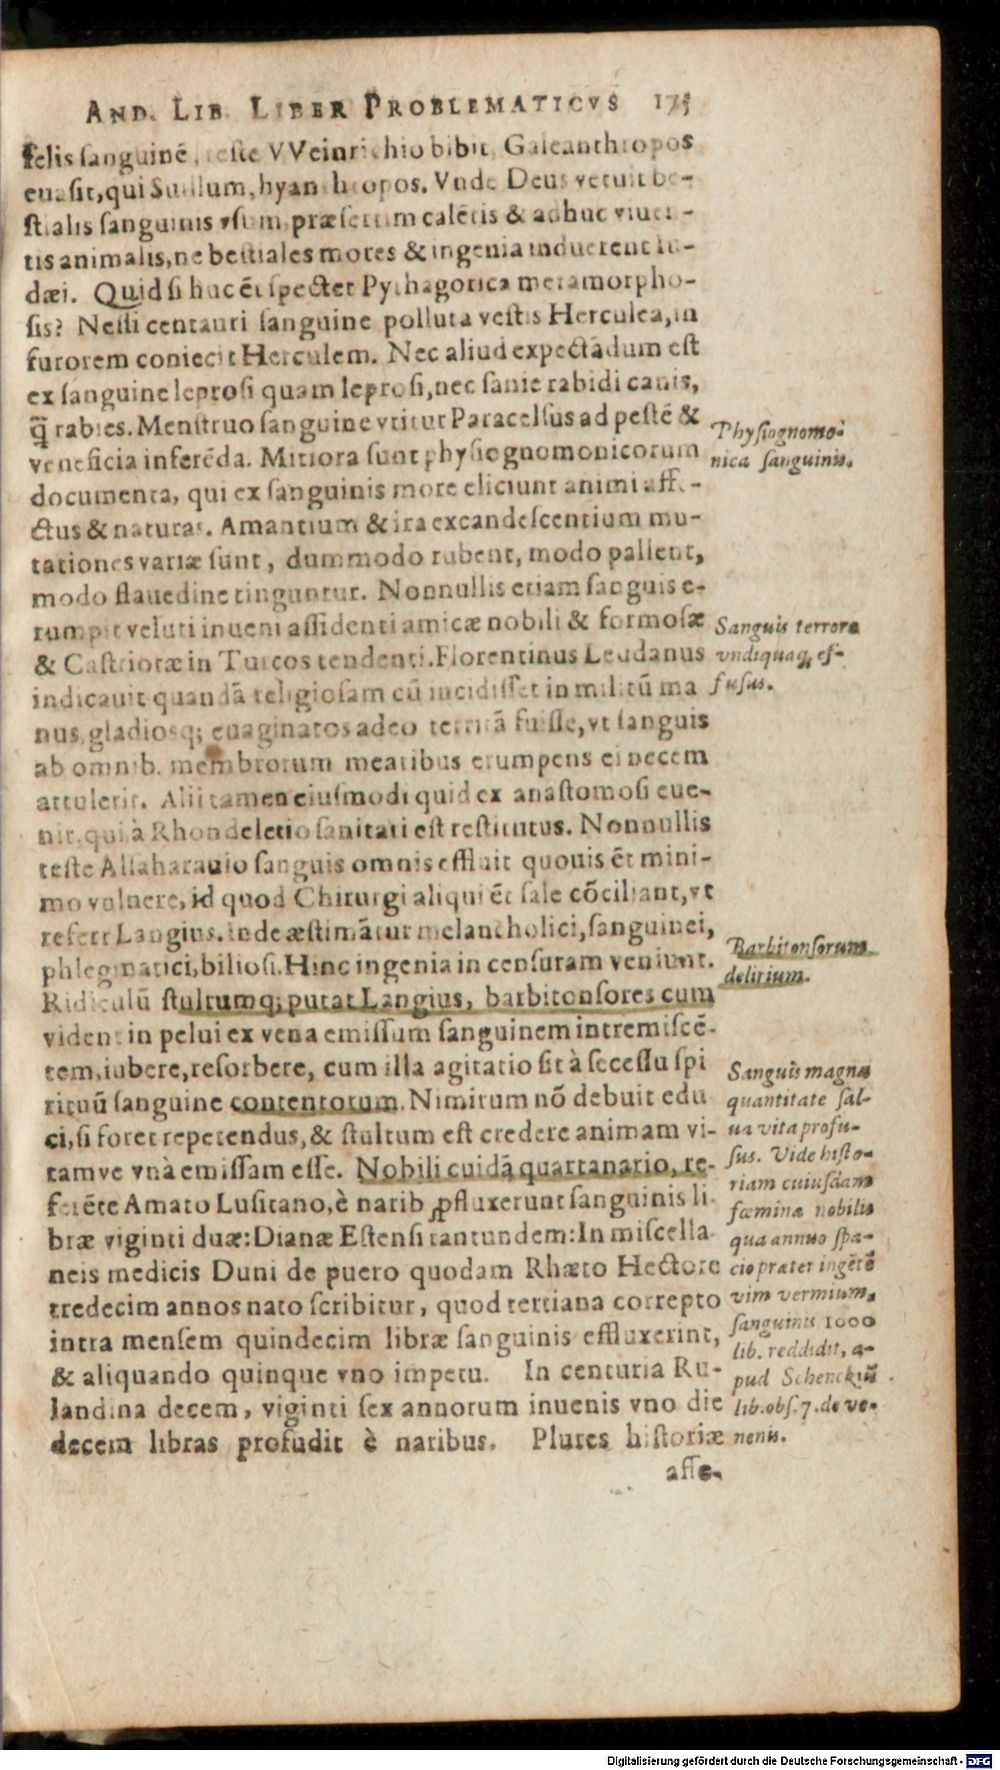 AND. LIB. LIBER PROBLEMATICVS 175
felis sanguinē, teste VVeinrichio bibit, Galeanthropos
euasit, qui Suillum, hyanthropos. Vnde Deus vetuit be-
stialis sanguinis vsum, præsertim calētis & adhuc viuen-
tis animalis, ne bestiales mores & ingenia induerent Iu-
dæi. Quid si huc ēt spectet Pythagorica metamorpho-
sis? Nessi centauri sanguine polluta vestis Herculea, in
furorem coniecit Herculem. Nec aliud expectādum est
ex sanguine leprosi quam leprosi, nec sanie rabidi canis,
q̄ rabies. Menstruo sanguine vtitur Paracelsus ad pestē &
veneficia inferēda. Mitiora sunt physiognomonicorum
documenta, qui ex sanguinis more eliciunt animi affe-
ctus & naturas. Amantium & ira excandescentium mu-
tationes variæ sunt, dum modo rubent, modo pallent,
modo flauedine tinguntur. Nonnullis etiam sanguis e-
rumpit veluti iuueni assidenti amicæ nobili & formosæ
& Castriotæ in Turcos tendenti. Florentinus Leudanus
indicauit quandā religiosam cū incidisset in militū ma
nus, gladiosq; euaginatos adeo territā fuisse, vt sanguis
ab omnib. membrorum meatibus erumpens ei necem
attulerit. Alii tamen eiusmodi quid ex anastomosi eue-
nit, qui à Rhondeletio sanitati est restitutus. Nonnullis
teste Alsaharauio sanguis omnis effluit quouis ēt mini-
mo vulnere, id quod Chirurgi aliqui ēt sale cōciliant, vt
refert Langius. Inde æstimātur melancholici, sanguinei,
phlegmatici, biliosi. Hinc ingenia in censuram veniunt.
Ridiculū stultumq; putat Langius, barbitonsores cum
vident in pelui ex vena emissum sanguinem intremiscē-
tem, iubere, resorbere, cum illa agitatio sit à secessu spi
rituū sanguine contentorum. Nimirum nō debuit edu
ci, si foret repetendus, & stultum est credere animam vi-
tamve vnà emissam esse. Nobili cuidā quartanario, re-
ferēte Amato Lusitano, è narib ꝓfluxerunt sanguinis li
bræ viginti duæ: Dianæ Estensi tantundem: In miscella
neis medicis Duni de puero quodam Rhæto Hectore
tredecim annos nato scribitur, quod tertiana correpto
intra mensem quindecim libræ sanguinis effluxerint,
& aliquando quinque vno impetu. In centuria Ru-
landina decem, viginti sex annorum iuuenis vno die
decem libras profudit è naribus. Plures historiæ
asse-
Physiognomo-
nica sanguinis.
Sanguis terrore
vndiquaq; ef-
fusus.
Barbitonsorum
delirium.
Sanguis magna
quantitate sal-
ua vita profu-
sus. Vide histo-
riam cuiusdam
fœminæ nobilis
qua annuo spa-
cio præter ingētē
vim vermium,
sanguinis 1000
lib. reddidit, a-
pud Schenckiū
lib. obs. 7. de ve-
nenis.
Digitalisierung gefördert durch die Deutsche Forschungsgemeinschaft - DFG